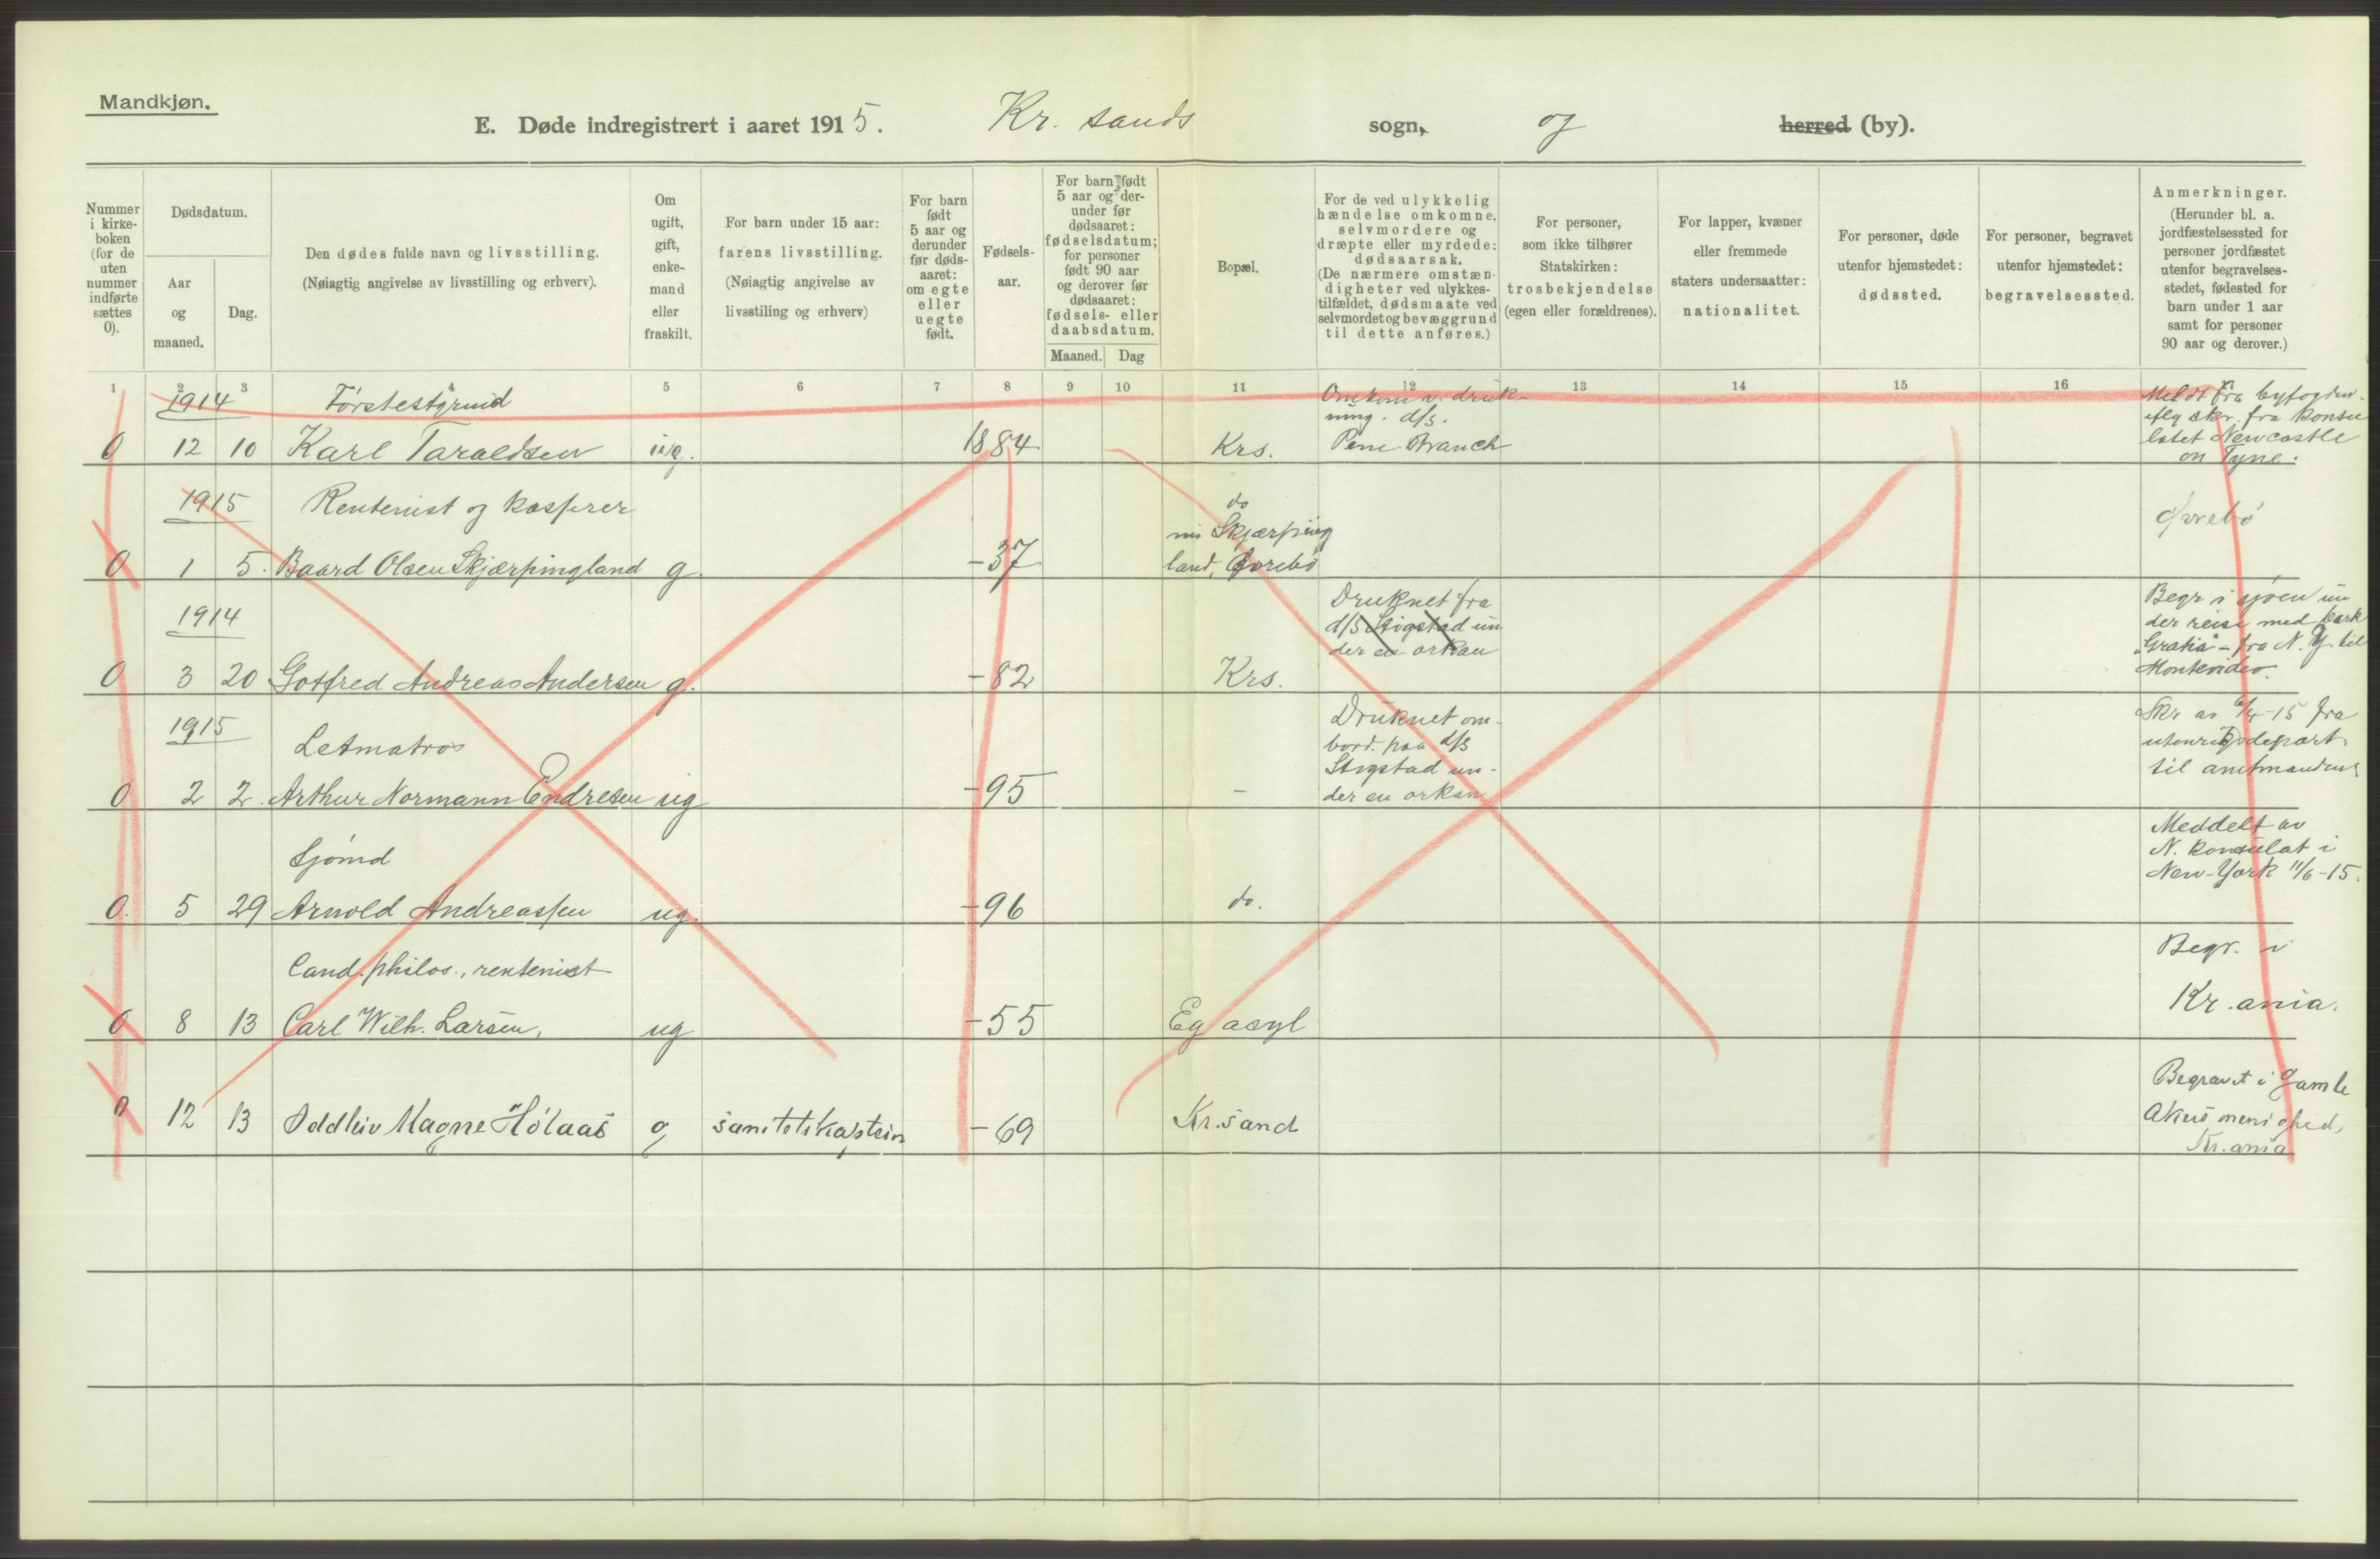 Mandkjøn.
E. Døde indregistrert i aaret 1915. Kr. sands sogn, og herred (by).
Nummer i kirke-boken (for de uten nummer indførte sættes 0).
Dødsdatum.
Aar og maaned.
Dag.
Den dødes fulde navn og livsstilling.
(Nøiagtig angivelse av livsstilling og erhverv).
Om ugift, gift, enke-mand eller fraskilt.
For barn under 15 aar: farens livsstilling.
(Nøiagtig angivelse av livsstiling og erhverv)
For barn født 5 aar og derunder før døds-aaret: om egte eller uegte født.
Fødsels-aar.
For barn født 5 aar og der-under før dødsaaret: fødselsdatum; for personer født 90 aar og derover før dødsaaret: fødsels- eller daabsdatum.
Maaned. Dag
Bopæl.
For de ved ulykkelig hændelse omkomne, selvmordere og dræpte eller myrdede: dødsaarsak.
(De nærmere omstæn-digheter ved ulykkes-tilfældet, dødsmaate ved selvmordet og bevæggrund til dette anføres.)
For personer, som ikke tilhører Statskirken: trosbekjendelse (egen eller forældrenes).
For lapper, kvæner eller fremmede staters undersaatter: nationalitet.
For personer, døde utenfor hjemstedet: dødssted.
For personer, begravet utenfor hjemstedet: begravelsessted.
Anmerkninger.
(Herunder bl. a. jordfæstelsessted for personer jordfæstet utenfor begravelses-stedet, fødested for barn under 1 aar samt for personer 90 aar og derover.)
1 2 3 4 5 6 7 8 9 10 11 12 13 14 15 16 17
1914 Førstestyrmd Omkom v. druk-
ning. d/s.
0 12 10 Karl Taraldsen ug. 1884 Krs. Pene Branch
Meldt fra byfogden
iflg skr. fra konsu
latet Newcastle
on Tyne.
1915 Rentenist og kasserer do
nu Skjærping
0 1 5. Baard Olsen Skjærpingland g. -37 land, Øvrebø
Øvrebø
1914 Druknet fra
d/S Stigstad un
der en orkan
0 3 20 Gotfred Andreas Andersen g. -82 Krs.
Begr i sjøen un
der reise med bark
"Gratia" - fra N. Y. til
Montevideo.
1915 Letmatros Druknet om-
bord paa d/s
Stigstad un-
0 2 2. Arthur Normann Endresen ug -95 - der en orkan
Skr av 6/4-15 fra
utenrigsdepart.
til amtmanden
Sjømd
0. 5 29 Arnold Andreassen ug. -96 do.
Meddelt av
N. konsulat i
New-York 11/6-15.
Cand. philos., rentenist
0 8 13 Carl Wilh. Larsen, ug -55 Eg asyl
Begr. i
Kr.ania.
0 12 13 Oddleiv Magne Hølaas g sanitetskaptein -69 Kr.sand
Begravet i Gamle
Akers menighed,
Kr.ania